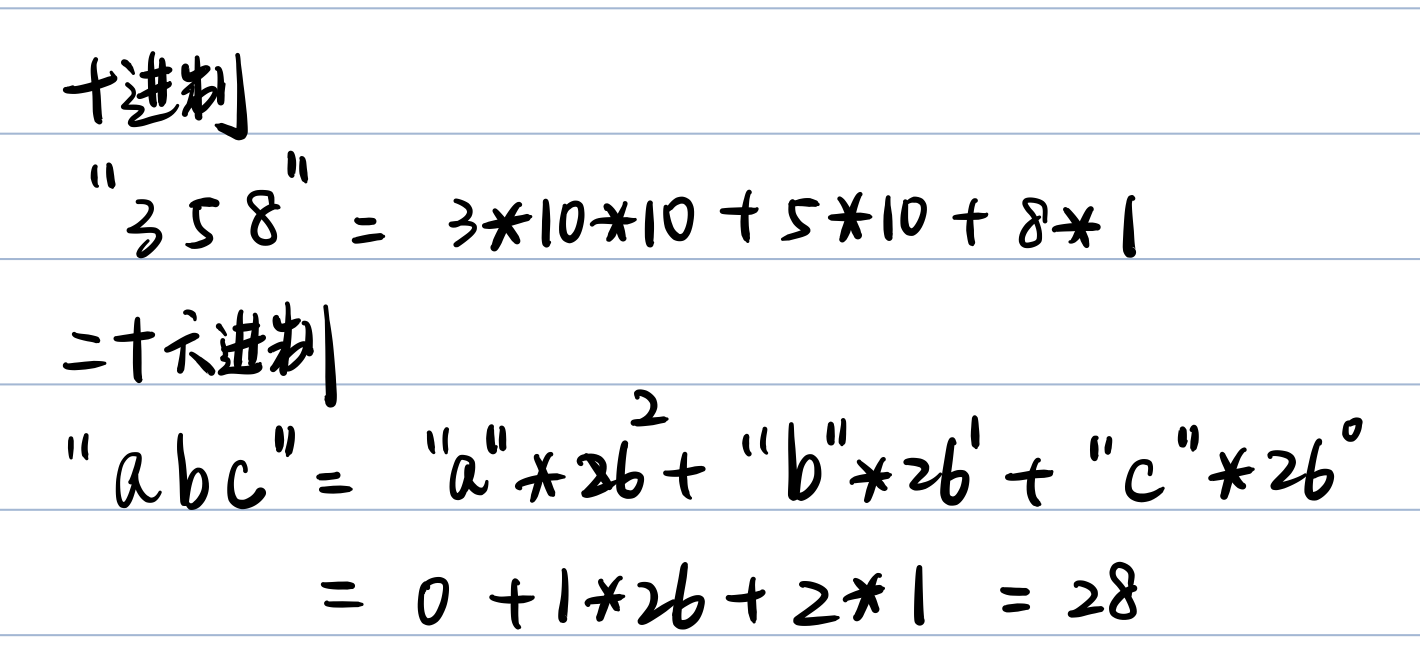 十进制
"358" = 3*10*10 + 5*10 + 8*1
二十六进制
"abc" = "a"*26² + "b"*26¹ + "c"*26⁰
= 0 + 1*26 + 2*1 = 28